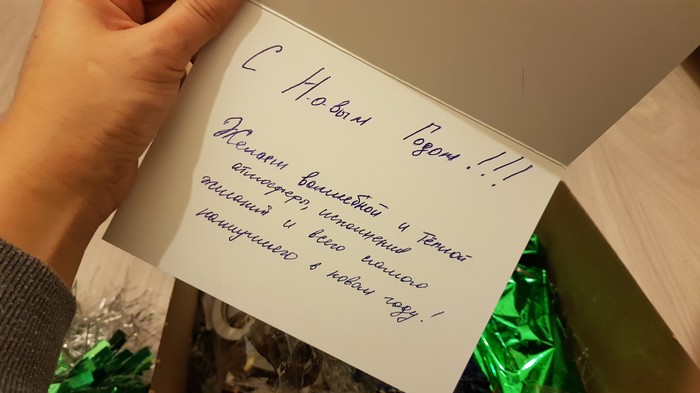 С Новым Годом!!!
Желаем волшебной и тёплой
атмосферы, исполнения
желаний и всего самого
наилучшего в новом году!